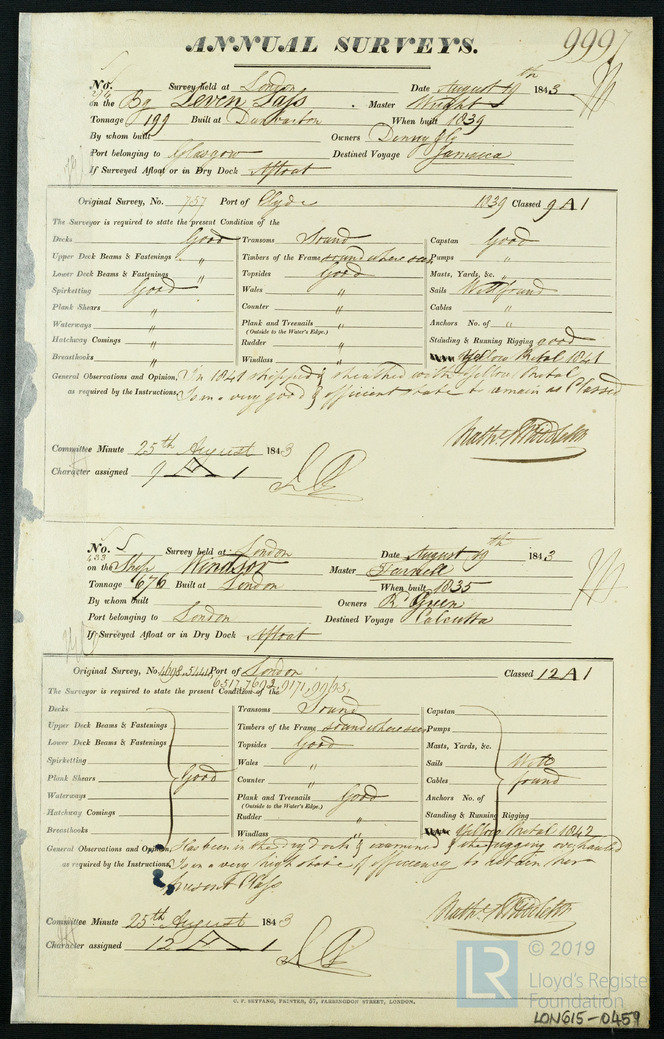 ANNUAL SURVEYS. 9997
No. Survey held at London Date August 19th 1843
on the Bg Leven Lass . Master Wright
Tonnage 199 Built at Dumbarton When built 1839
By whom built Owners Denny & Co
Port belonging to Glasgow Destined Voyage Jamaica
If Surveyed Afloat or in Dry Dock Afloat
Original Survey, No. 757 Port of Clyde 1839 Classed 9 A 1
The Surveyor is required to state the present Condition of the
Decks Good Transoms Sound Capstan Good
Upper Deck Beams & Fastenings " Timbers of the Frame sound where seen Pumps "
Lower Deck Beams & Fastenings " Topsides Good Masts, Yards, &c. "
Spirketting Good Wales " Sails Well found
Plank Shears " Counter " Cables "
Waterways " Plank and Treenails " Anchors No. of "
(Outside to the Water's Edge.)
Hatchway Comings " Rudder " Standing & Running Rigging good
Breasthooks " Windlass " Yellow Metal 1841
General Observations and Opinion, In 1841 stripped & sheathed with Yellow Metal
as required by the Instructions, Is in a very good & efficient state to remain as Classed
Nathl Middleton
Committee Minute 25th August 1843
Character assigned 9 A 1
No. 5 Survey held at London Date August 19th 1843
433
on the Ship Windsor Master
Tonnage 676 Built at London When built 1835
By whom built Owners Rd Green
Port belonging to London Destined Voyage Calcutta
If Surveyed Afloat or in Dry Dock Afloat
Original Survey, No. 4698.5441 Port of London Classed 12 A 1
6517,7692,9171,9965,
The Surveyor is required to state the present Condition of the
Decks Transoms Sound Capstan
Upper Deck Beams & Fastenings Timbers of the Frame sound where seen Pumps
Lower Deck Beams & Fastenings Topsides Good Masts, Yards, &c.
Spirketting Wales " Sails Well
Plank Shears Good Counter " Cables found
Waterways Plank and Treenails Good Anchors No. of
(Outside to the Water's Edge.)
Hatchway Comings Rudder Standing & Running Rigging
Breasthooks Windlass " Yellow Metal 1842
General Observations and Opinion, Has been in the dry dock & examined & the rigging overhauled
as required by the Instructions, Is in a very high state of efficiency to retain her
present Class
Nathl Middleton
Committee Minute 25th August 1843
Character assigned 12 A 1
C. F. SEYFANG, PRINTER, 57, FARRINGDON STREET, LONDON.
LR © 2019
Lloyd's Register
Foundation
LON615-0459